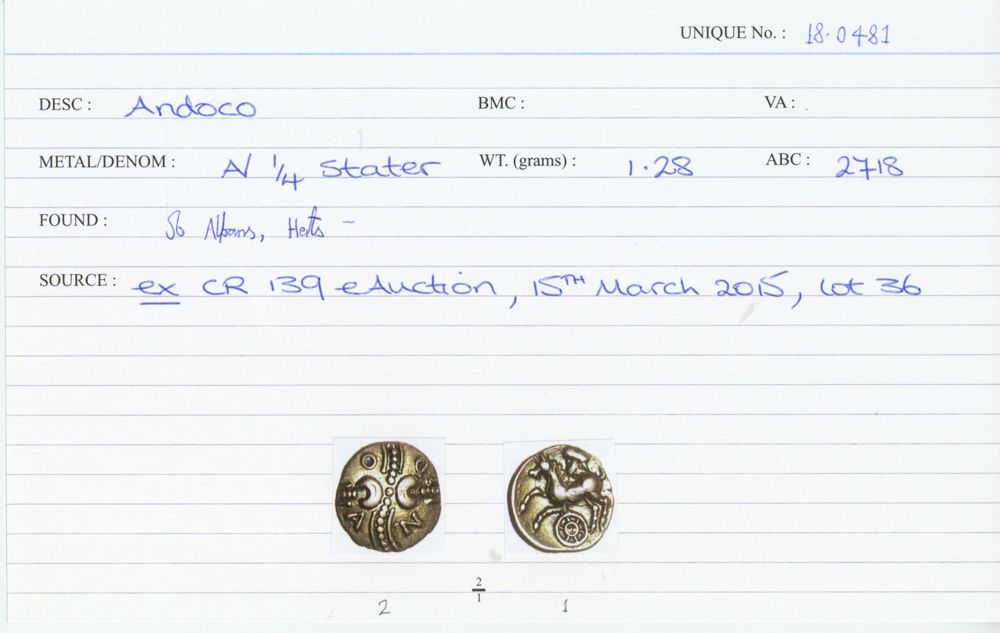 UNIQUE No. : 18.0481
DESC : Andoco BMC : VA :
METAL/DENOM : A/ 1/4 Stater WT. (grams) : 1.28 ABC : 2718
FOUND : St Albans, Herts -
SOURCE : ex CR 139 eAuction, 15TH March 2015, lot 36
A N D O
2/1
2 1